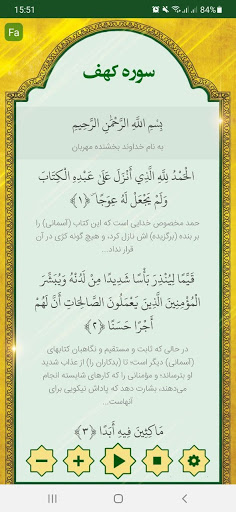 15:51
84%
Fa
سوره کهف
بِسْمِ اللَّهِ الرَّحْمَٰنِ الرَّحِيمِ
به نام خداوند بخشنده مهربان
الْحَمْدُ لِلَّهِ الَّذِي أَنْزَلَ عَلَىٰ عَبْدِهِ الْكِتَابَ
وَلَمْ يَجْعَلْ لَهُ عِوَجًا ﴿۱﴾
حمد مخصوص خدایی است که این کتاب (آسمانی) را
بر بنده (برگزیده) اش نازل کرد، و هیچ گونه کژی در آن
قرار نداد...
قَيِّمًا لِيُنْذِرَ بَأْسًا شَدِيدًا مِنْ لَدُنْهُ وَيُبَشِّرَ
الْمُؤْمِنِينَ الَّذِينَ يَعْمَلُونَ الصَّالِحَاتِ أَنَّ لَهُمْ
أَجْرًا حَسَنًا ﴿۲﴾
در حالی که ثابت و مستقیم و نگاهبان کتابهای
(آسمانی) دیگر است؛ تا (بدکاران را) از عذاب شدید
او بترساند؛ و مؤمنانی را که کارهای شایسته انجام
می‌دهند، بشارت دهد که پاداش نیکویی برای
آنهاست...
مَاكِثِينَ فِيهِ أَبَدًا ﴿۳﴾